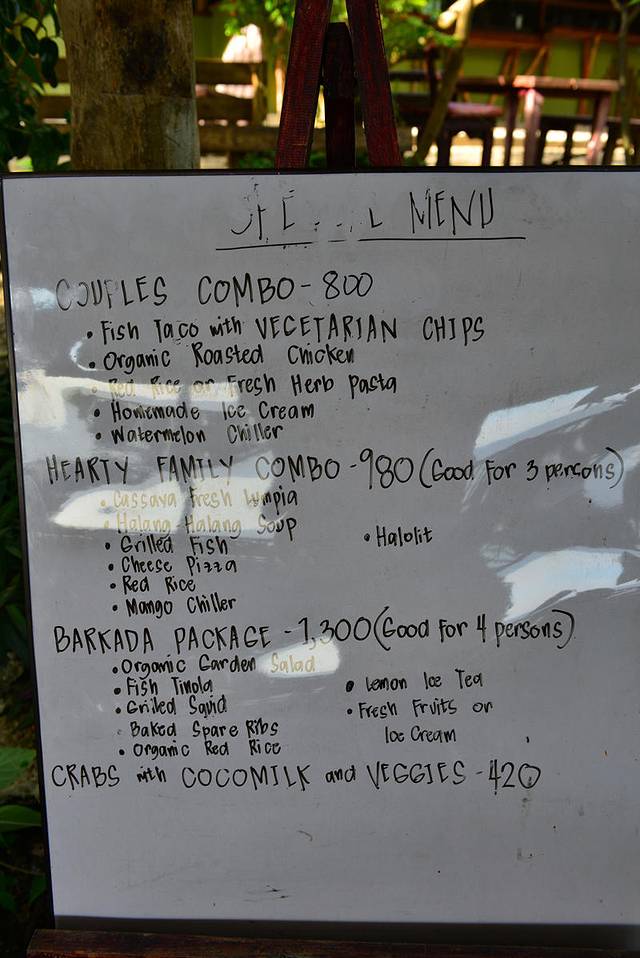 MENU
COUPLES COMBO - 800
• Fish Taco with VEGETARIAN CHIPS
• Organic Roasted Chicken
• Red Rice or Fresh Herb Pasta
• Homemade Ice Cream
• Watermelon Chiller
HEARTY FAMILY COMBO - 980 (Good for 3 persons)
• Cassava Fresh Lumpia
• Halang-Halang Soup
• Grilled Fish
• Halolit
• Cheese Pizza
• Red Rice
• Mango Chiller
BARKADA PACKAGE - 1,300 (Good for 4 persons)
• Organic Garden Salad
• Fish Tinola
• Grilled Squid
• Baked Spare Ribs
• Organic Red Rice
• Lemon Ice Tea
• Fresh Fruits or
Ice Cream
CRABS with COCOMILK and VEGGIES - 420